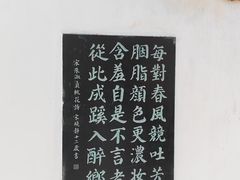 每對春風競吐芳
胭脂顏色更濃妝
含羞自是不言者
從此成蹊入醉鄉
宋朱淑真桃花詩